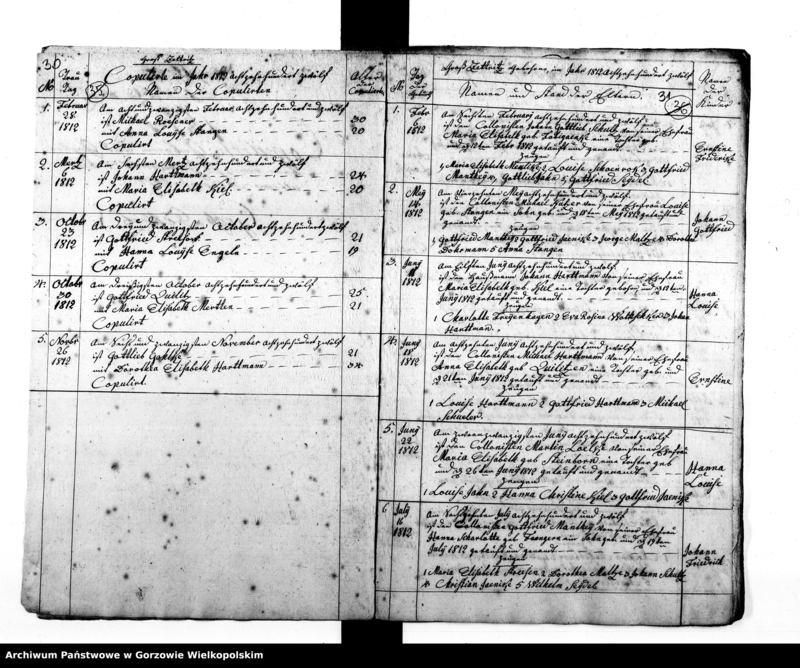 30
Groß Zettritz
Copulirte im Jahr 1812 achtzehnhundert zwölf
No
Trau Tag
38
Namen der Copulirten
Alter der Copulirten
1. Februar 28. 1812
Am achtundzwanzigsten Februar achtzehnhundertundzwölf
ist Michael Roessner 30
mit Anna Louyse Stangen 20
Copulirt
2. Mertz 6 1812
Am Sechsten Mertz achtzehnhundertundzwölf
ist Johann Harttmann 24
mit Maria Elisabeth Kiel 20
Copulirt
3. Octobr 23 1812
Am dreyundzwanzigsten October achtzehnhundertzwölf
ist Gottfried 21
mit Hanna Louyse Engeln 19
Copulirt
4. Octobr 30 1812
Am dreißigsten October achtzehnhundertundzwölf
ist Gottfried Quilitz 25
mit Maria Elisabeth Mertten 21
Copulirt
5. Novbr 26 1812
Am Sechsundzwanzigsten November achtzehnhundertzwölf
ist Gottlieb 21
mit Dorothea Elisabeth Harttmann 34
Copulirt.
Groß Zettritz Gebohrne, im Jahr 1812 achtzehnhundert zwölf
31
No
Tag der Geburt
Namen und Stand der Eltern
28
Namen der Kinder
1. Febr 6 1812
Am Sechsten Februar achtzehnhundert und zwölf
ist dem Colonisten Johann Gottlieb Schultz von seiner Ehefrau
Maria Elisabeth geb eine Tochter geb.
und 12ten Febr 1812 getauft und genannt
Ernstine Friderike
Zeugen
1 Maria Elisabeth 2 Louise Schoenrock 3 Gottfried
Manthey 4 Gottlieb Jahn 5 Gottfried Seydel
2. Mey 14 1812
Am Vierzehnten Mey achtzehnhundertundzwölf
ist dem Colonisten Michael von seiner Ehefrau Louise
geb. Stangen ein Sohn geb. und 18ten Mey 1812 getauft und
genannt
Johann Gottfried
Zeugen
1 Gottfried Manthey 2 Gottfried Jaenicke 3 George Maltze 4 Dorothea
Dohrmann 5 Anna Stangen
3. Juny 11 1812
Am Elften Juny achtzehnhundertundzwölf
ist dem Johann Harttmann von seiner Ehefrau
Maria Elisabeth geb. Kiel eine Tochter gebohren und 12ten
Juny 1812 getauft und genannt
Hanna Louise
Zeugen
1 Charlotte 2 Eva Rosine 3 Johan
Harttman.
4. Juny 18 1812
Am achtzehnten Juny achtzehnhundertundzwölf
ist dem Colonisten Michael Harttmann von seiner Ehefrau
Anna Elisabeth geb Quilitzen eine Tochter geb. und
21ten Juny 1812 getauft und genannt
Ernstine
Zeugen
1 Louise Harttmann 2 Gottfried Harttmann 3 Michael
Schueler.
5. Juny 22 1812
Am zweiundzwanzigsten Juny achtzehnhundert zwölf
ist dem Collonisten Martin von seiner Ehefrau
Maria Elisabeth geb Steinborn eine Tochter geb
und 26ten Juny 1812 getauft und genannt
Hanna Louise
Zeugen
1 Louise Jahn 2 Hanna Christine Kiel 3 Gottfried Jaenicke
6 July 16 1812
Am Sechzehnten July achtzehnhundert und zwölf
ist dem Collonisten Gottfried Manthey von seiner Ehefrau
Hanna Scharlotte geb ein Sohn geb. und 19ten
July 1812 getauft und genannt
Johann Friedrich
Zeugen
1 Maria Elisabeth 2 Dorothea Maltze 3 Johann Schultz
4 Christian Jaenicke 5 Wilhelm Seydel
Archiwum Państwowe w Gorzowie Wielkopolskim